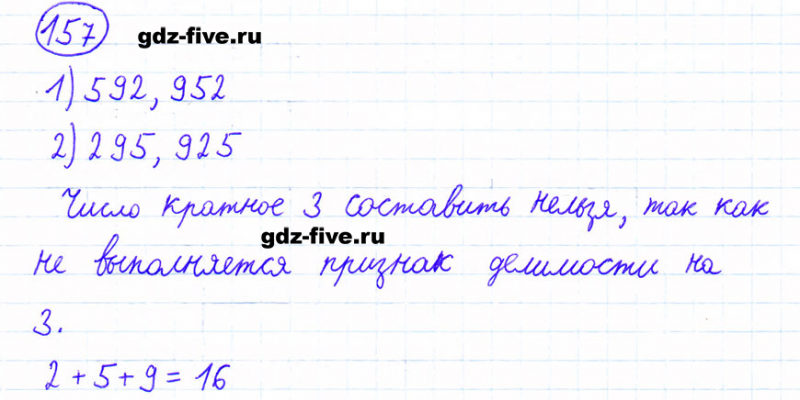 157 gdz-five.ru
1) 592, 952
2) 295, 925
Число кратное 3 составить нельзя, так как
gdz-five.ru
не выполняется признак делимости на
3.
2 + 5 + 9 = 16